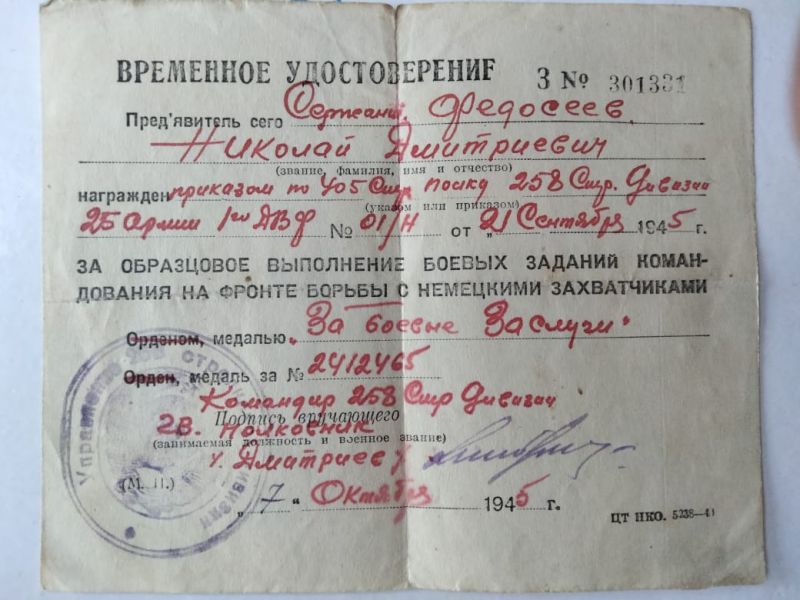 ВРЕМЕННОЕ УДОСТОВЕРЕНИЕ З № 301331
Пред'явитель сего Сержант Федосеев
Николай Дмитриевич
(звание, фамилия, имя и отчество)
награжден приказом по 405 Стр полку 258 Стр. Дивизии
(указом или приказом)
25 Армии 1го ДВФ № 01/Н от „21 Сентября 1945 г.
ЗА ОБРАЗЦОВОЕ ВЫПОЛНЕНИЕ БОЕВЫХ ЗАДАНИЙ КОМАН-
ДОВАНИЯ НА ФРОНТЕ БОРЬБЫ С НЕМЕЦКИМИ ЗАХВАТЧИКАМИ
Орденом, медалью „За боевые Заслуги"
Орден, медаль за № 2412465
Командир 258 Стр Дивизии
Подпись вручающего
гв. Полковник
(занимаемая должность и военное звание)
/Дмитриев/
(М. П.)
„7" Октября 1945 г.
ЦТ НКО. 5238—41
Управление